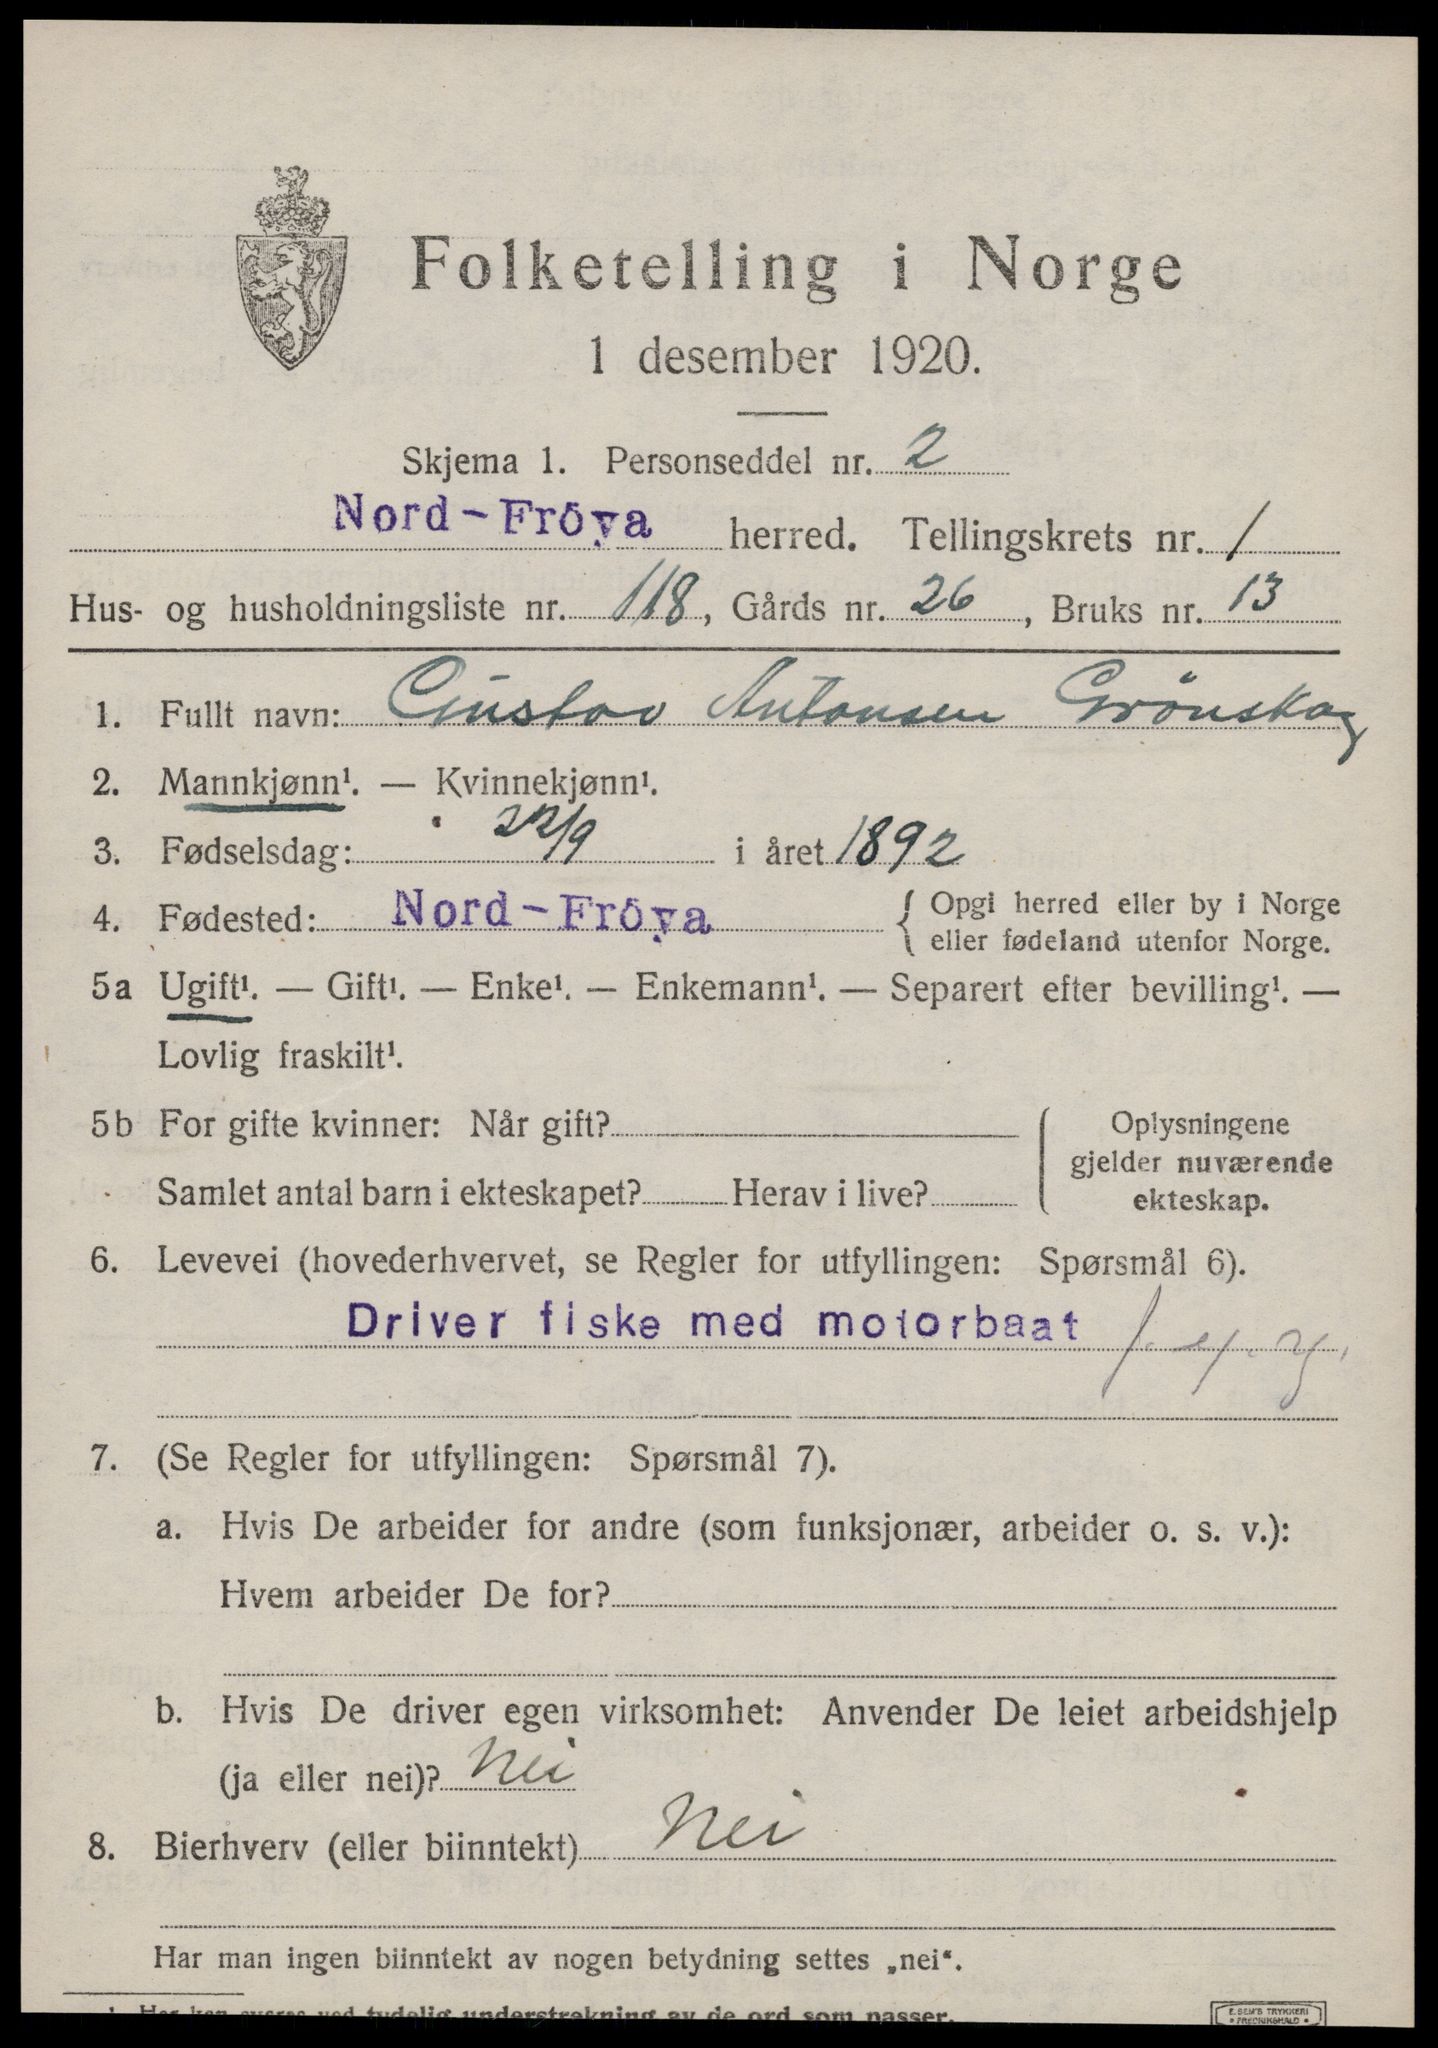 Folketelling i Norge
1 desember 1920.
Skjema 1. Personseddel nr. 2
Nord-Fröya herred. Tellingskrets nr. 1
Hus- og husholdningsliste nr. 118, Gårds nr. 26, Bruks nr. 13
1. Fullt navn: Gustav Antonsen Grönskag
2. Mannkjønn¹. — Kvinnekjønn¹.
3. Fødselsdag: 22/9 i året 1892
4. Fødested: Nord-Fröya { Opgi herred eller by i Norge
eller fødeland utenfor Norge.
5a Ugift¹. — Gift¹. — Enke¹. — Enkemann¹. — Separert efter bevilling¹. —
Lovlig fraskilt¹.
5b For gifte kvinner: Når gift?
Samlet antal barn i ekteskapet? Herav i live?
Oplysningene
gjelder nuværende
ekteskap.
6. Levevei (hovederhvervet, se Regler for utfyllingen: Spørsmål 6).
Driver fiske med motorbaat
7. (Se Regler for utfyllingen: Spørsmål 7).
a. Hvis De arbeider for andre (som funksjonær, arbeider o. s. v.):
Hvem arbeider De for?
b. Hvis De driver egen virksomhet: Anvender De leiet arbeidshjelp
(ja eller nei)? Nei
8. Bierhverv (eller biinntekt) Nei
Har man ingen biinntekt av nogen betydning settes „nei“.
¹ Her kan svares ved tydelig understrekning av de ord som passer.
E. SEM'S TRYKKERI
• FREDRIKSHALD •